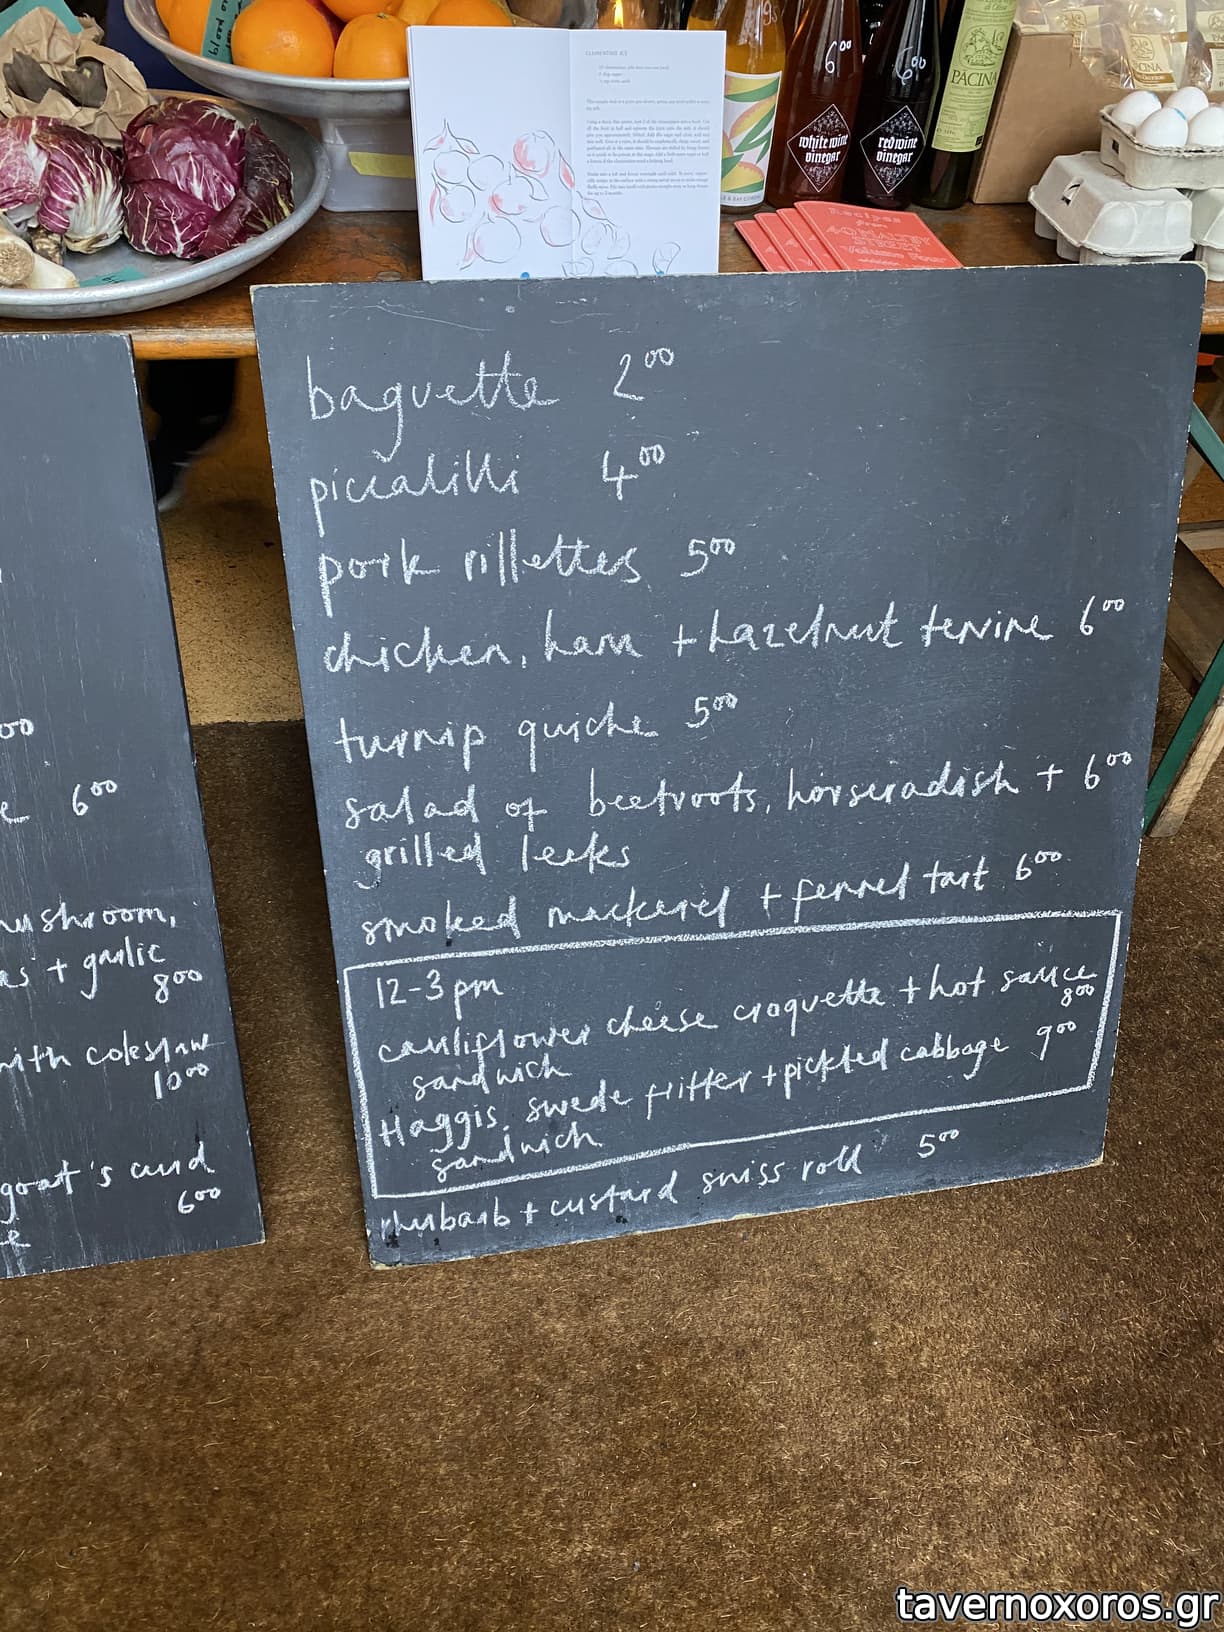 blood or
CLEMENTINE ICE
6⁰⁰
6⁰⁰
white wine
vinegar
red wine
vinegar
PACINA
PACINA
Recipes
from
40 MALTBY
STREET
Volume Four
baguette 2⁰⁰
piccalilli 4⁰⁰
pork rillettes 5⁰⁰
chicken, ham + hazelnut terrine 6⁰⁰
turnip quiche 5⁰⁰
salad of beetroots, horseradish + 6⁰⁰
grilled leeks
smoked mackerel + fennel tart 6⁰⁰
12-3pm
cauliflower cheese croquette + hot sauce
8⁰⁰
sandwich
Haggis, swede fritter + pickled cabbage 9⁰⁰
sandwich
rhubarb + custard swiss roll 5⁰⁰
00
e 6⁰⁰
mushroom,
as + garlic
8⁰⁰
with coleslaw
10⁰⁰
goat's curd
6⁰⁰
e
tavernoxoros.gr